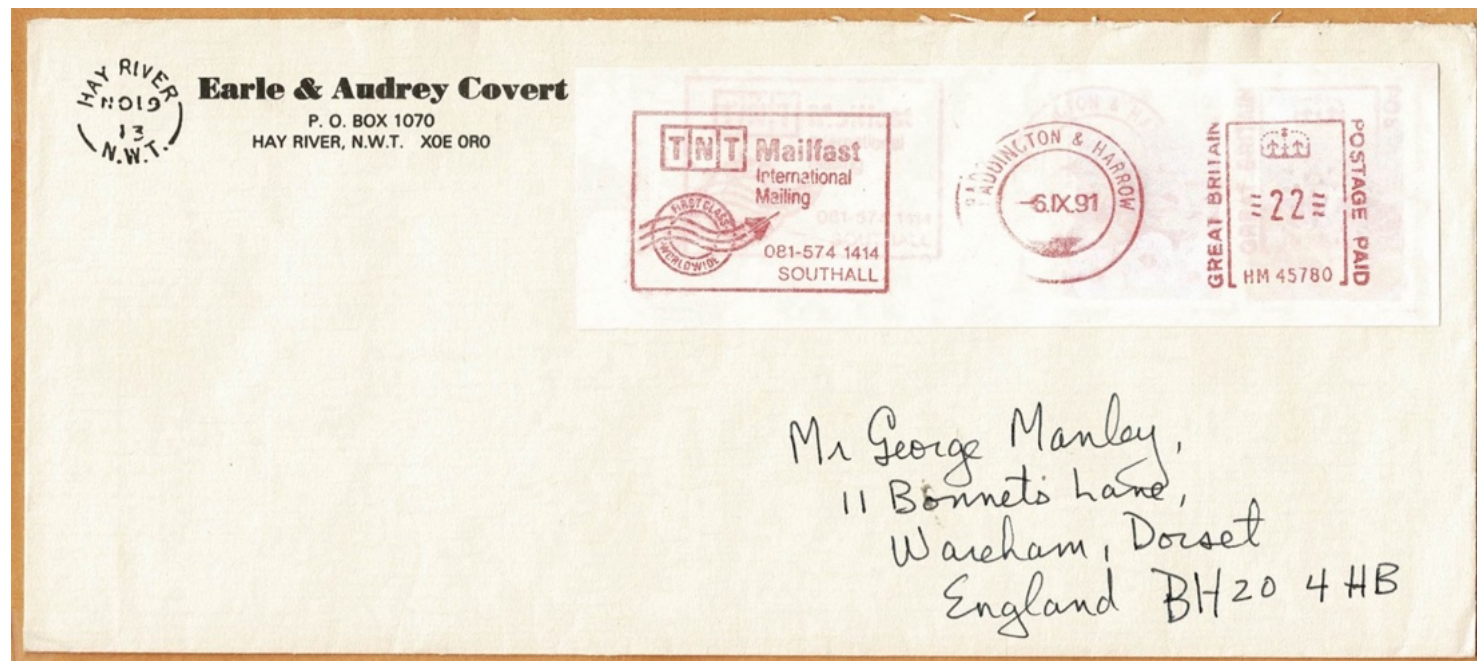 HAY RIVER
NO19
13
N.W.T.
Earle & Audrey Covert
P. O. BOX 1070
HAY RIVER, N.W.T. X0E 0R0
TNT Mailfast
International
Mailing
FIRST CLASS
WORLDWIDE
081-574 1414
SOUTHALL
PADDINGTON & HARROW
-6.IX.91
GREAT BRITAIN
22
HM 45780
POSTAGE PAID
Mr George Manley,
11 Bonnets Lane,
Wareham, Dorset
England BH20 4HB